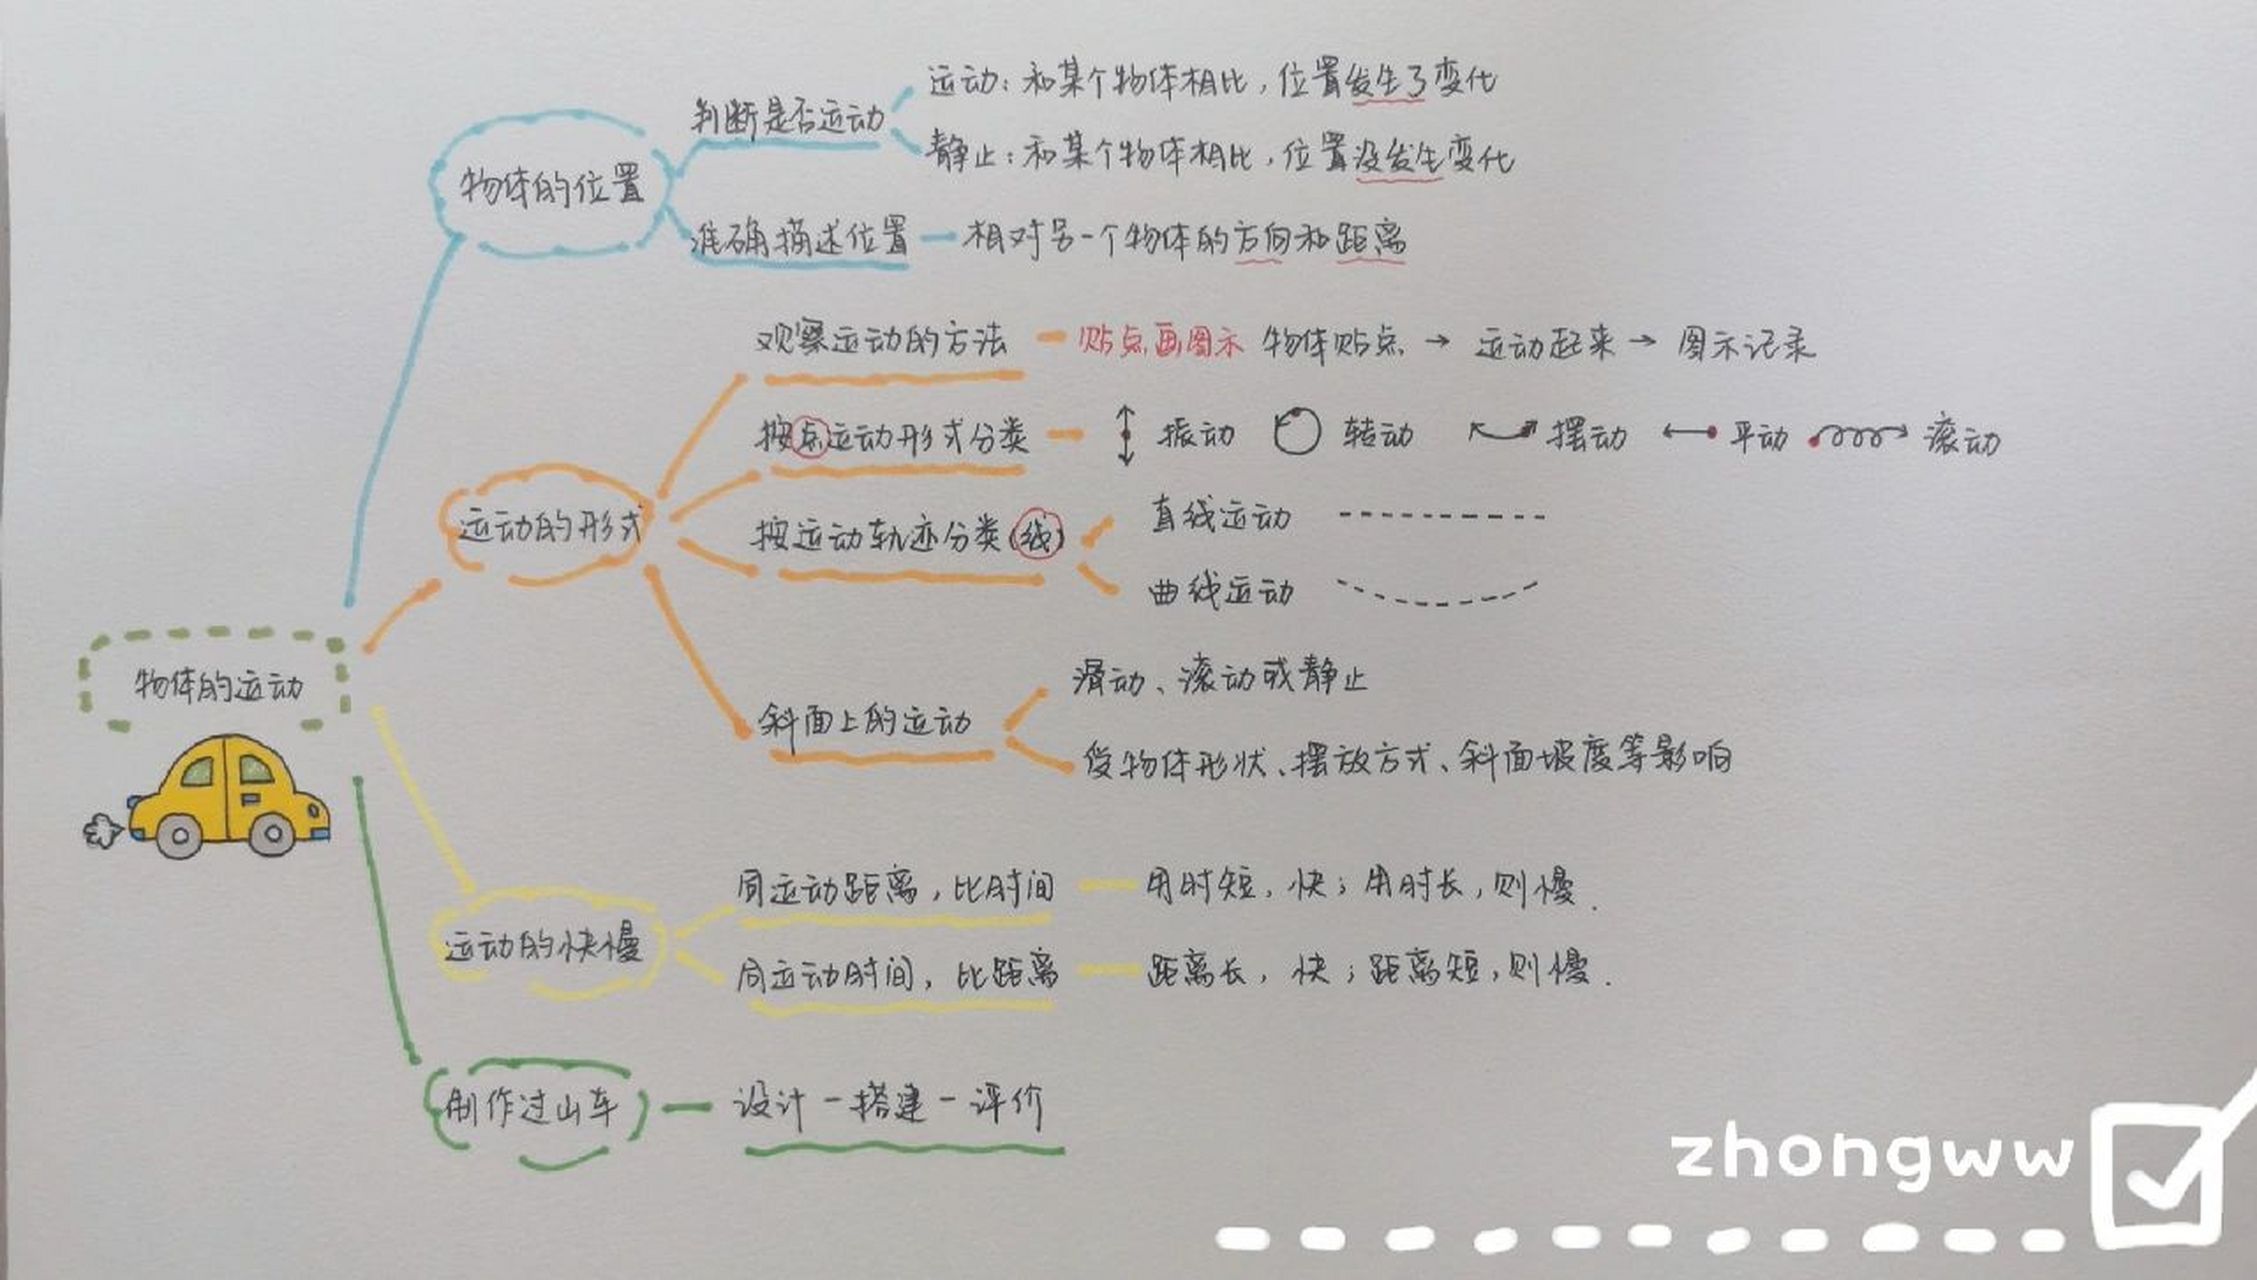 判断是否运动
运动：和某个物体相比，位置发生了变化
静止：和某个物体相比，位置没发生变化
物体的位置
准确描述位置
相对另一个物体的方向和距离
观察运动的方法
贴点画图示 物体贴点 → 运动起来 → 图示记录
按点运动形式分类
振动 转动 摆动 平动 滚动
运动的形式
按运动轨迹分类(线)
直线运动
曲线运动
物体的运动
斜面上的运动
滑动、滚动或静止
受物体形状、摆放方式、斜面坡度等影响
运动的快慢
同运动距离，比时间
用时短，快；用时长，则慢.
同运动时间，比距离
距离长，快；距离短，则慢.
制作过山车
设计-搭建-评价
zhongww